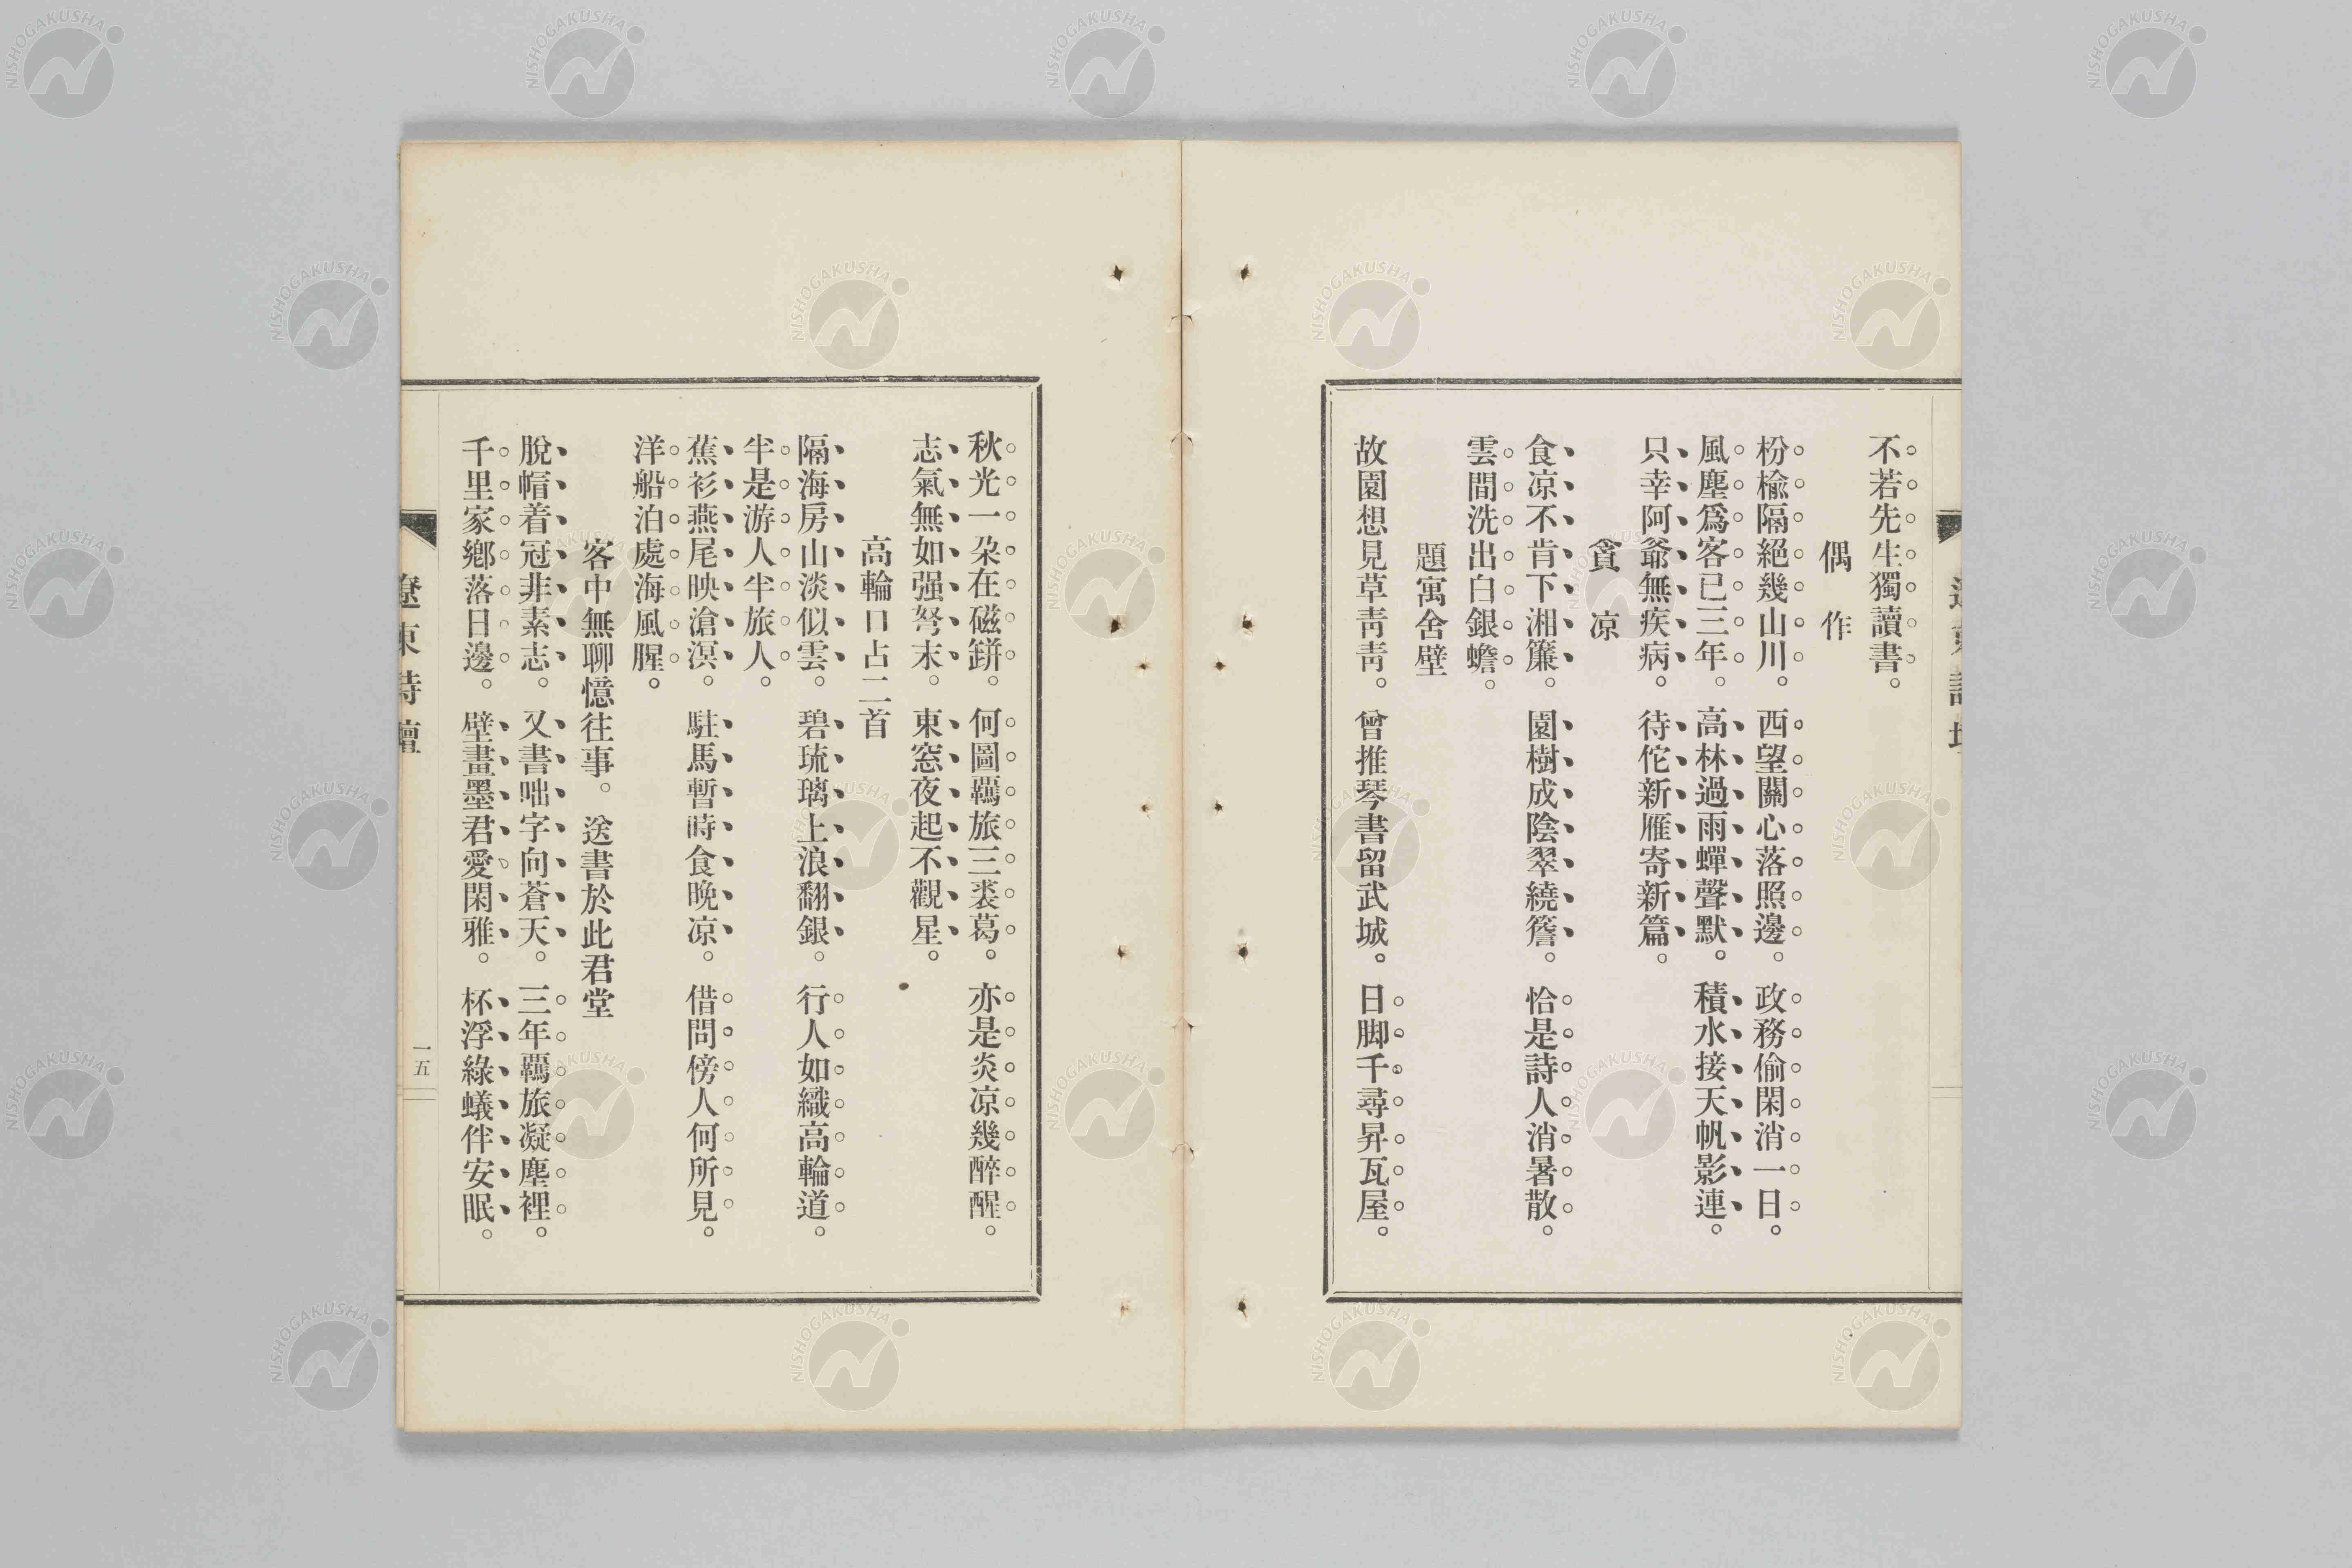 不若先生獨讀書。
偶作
枌楡隔絕幾山川。西望關心落照邊。政務偷閑消一日。
風塵爲客已三年。高林過雨蟬聲默。積水接天帆影連。
只幸阿爺無疾病。待佗新雁寄新篇。
貪凉
食凉不肯下湘簾。園樹成陰翠繞簷。恰是詩人消暑散。
雲間洗出白銀蟾。
題寓舍壁
故園想見草靑靑。曾推琴書留武城。日脚千尋昇瓦屋。
秋光一朶在磁缾。何圖羈旅三裘葛。亦是炎凉幾醉醒。
志氣無如强弩末。東窓夜起不觀星。
高輪口占二首
隔海房山淡似雲。碧琉璃上浪翻銀。行人如織高輪道。
半是游人半旅人。
蕉衫燕尾映滄溟。駐馬暫時食晩凉。借問傍人何所見。
洋船泊處海風腥。
客中無聊憶往事。送書於此君堂
脫帽着冠非素志。又書咄字向蒼天。三年羈旅凝塵裡。
千里家鄕落日邊。壁畫墨君愛閑雅。杯浮綠蟻伴安眠。
遼東詩壇
一五
NISHOGAKUSHA